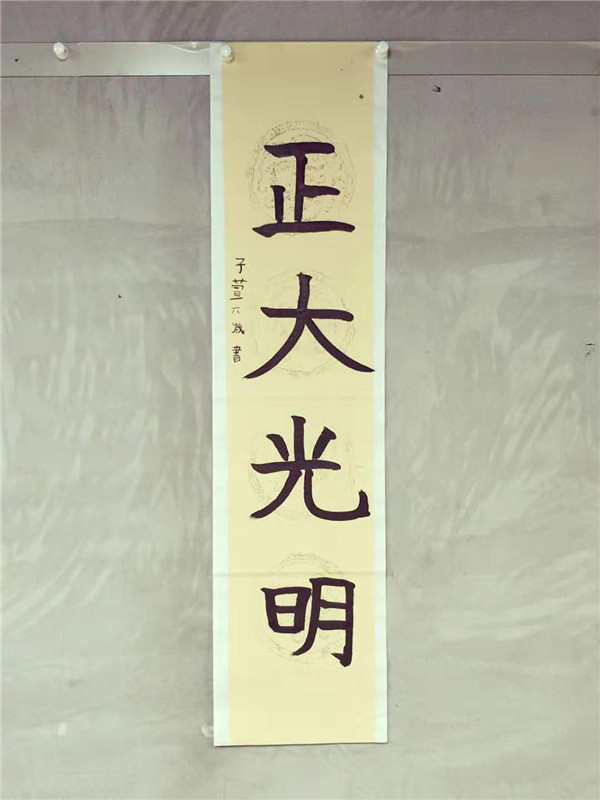 正大光明
子萱六歲書